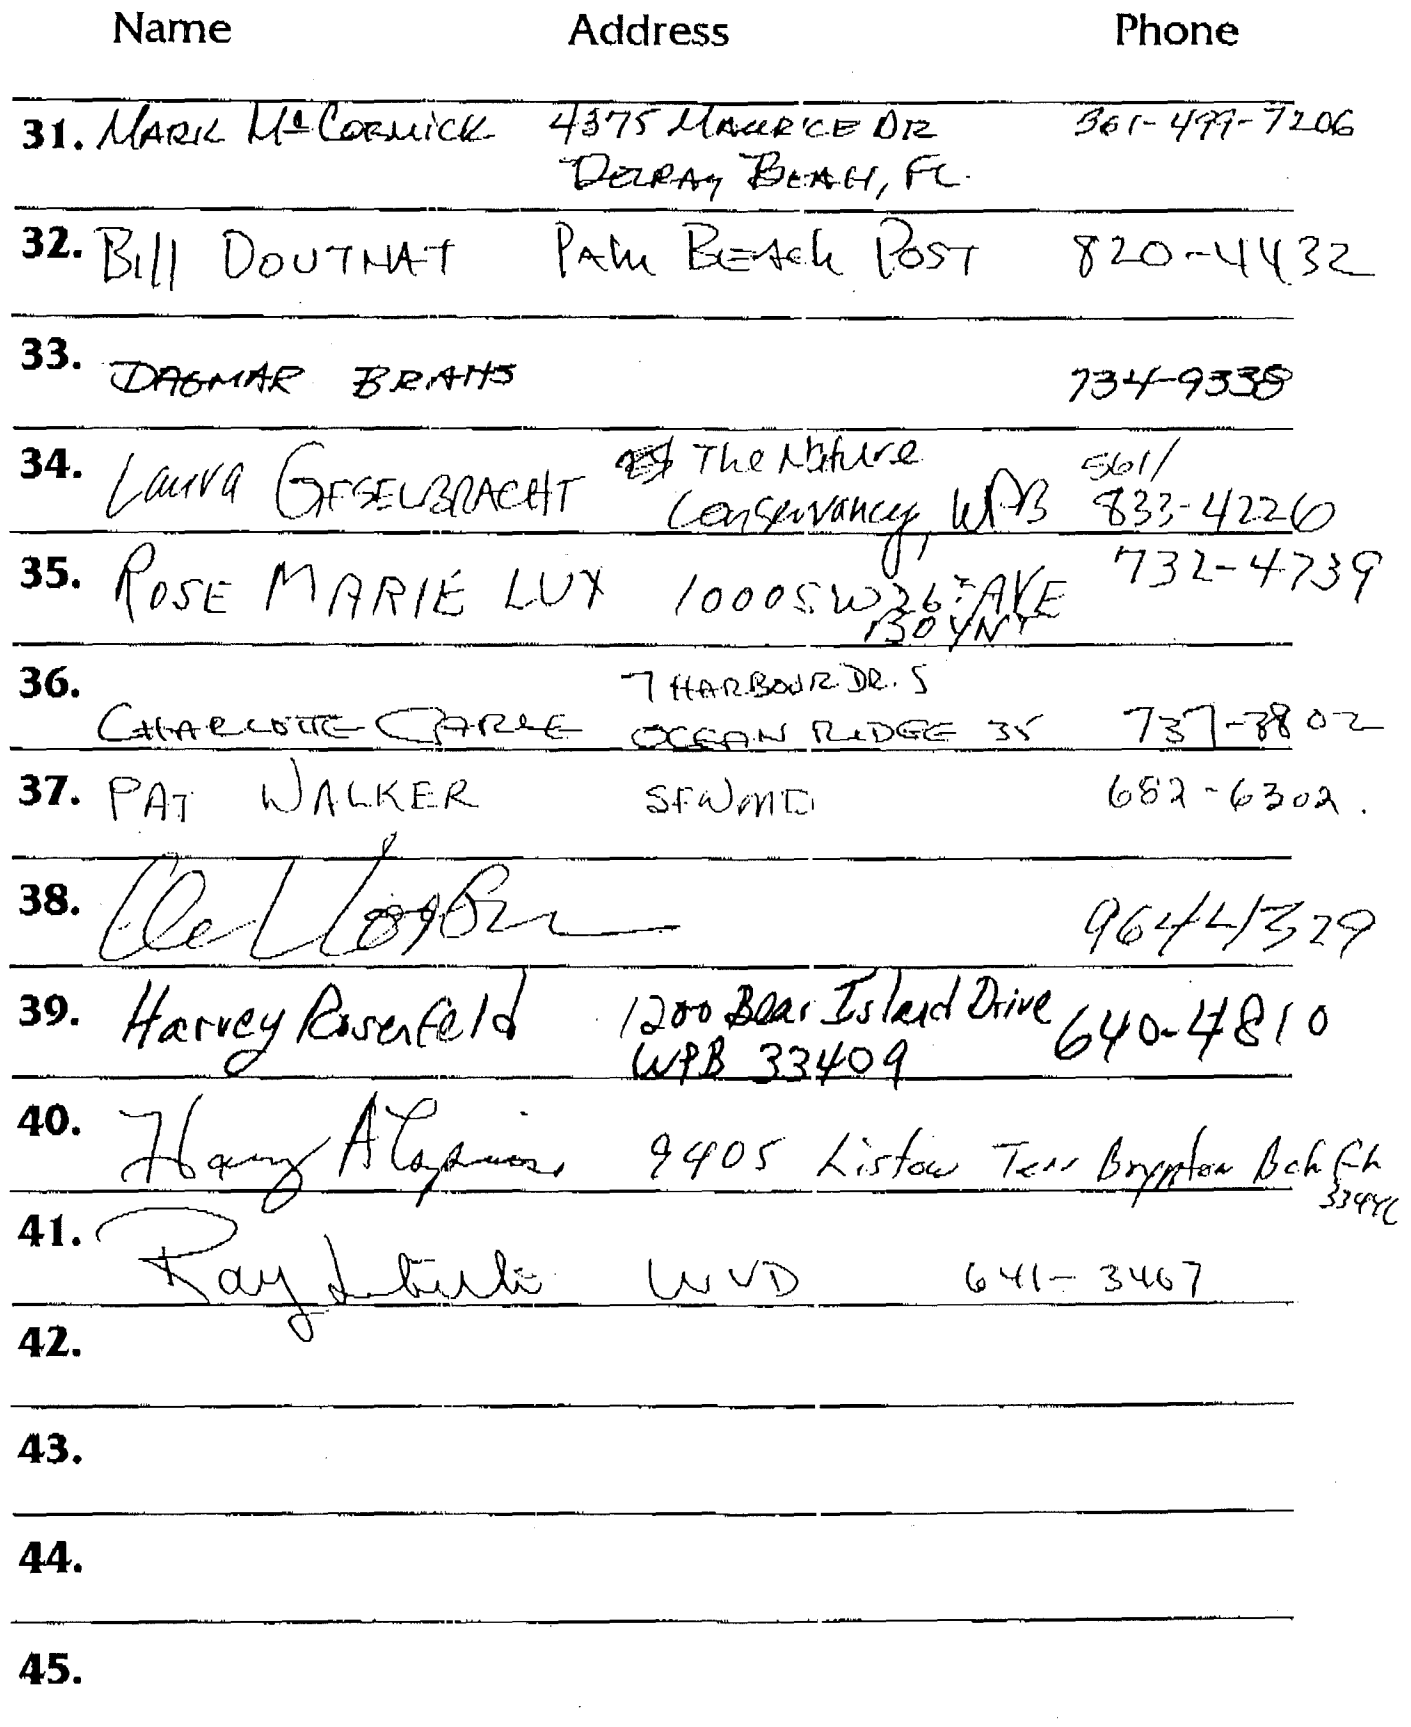 Name Address Phone
31. MARK McCORMICK 4375 MAURICE DR 561-499-7206
DELRAY BEACH, FL.
32. Bill DOUTHAT PAlm BEACh POST 820-4432
33. DAGMAR BRAHS 734-9338
34. Laura GESELBRACHT The Nature 561/
Conservancy, WPB 833-4226
35. ROSE MARIE LUX 1000 SW 26th AVE 732-4739
BOYNT
36. 7 HARBOUR DR. S
CHARLOTTE OCEAN RIDGE 35 737-3802
37. PAT WALKER SFWMD 682-6302.
38. 964-4329
39. Harvey Rosenfeld 1200 Bear Island Drive 640-4810
WPB 33409
40. Harry 9405 Listow Terr Boynton Bch
41. Ray WVD 641-3467
42.
43.
44.
45.